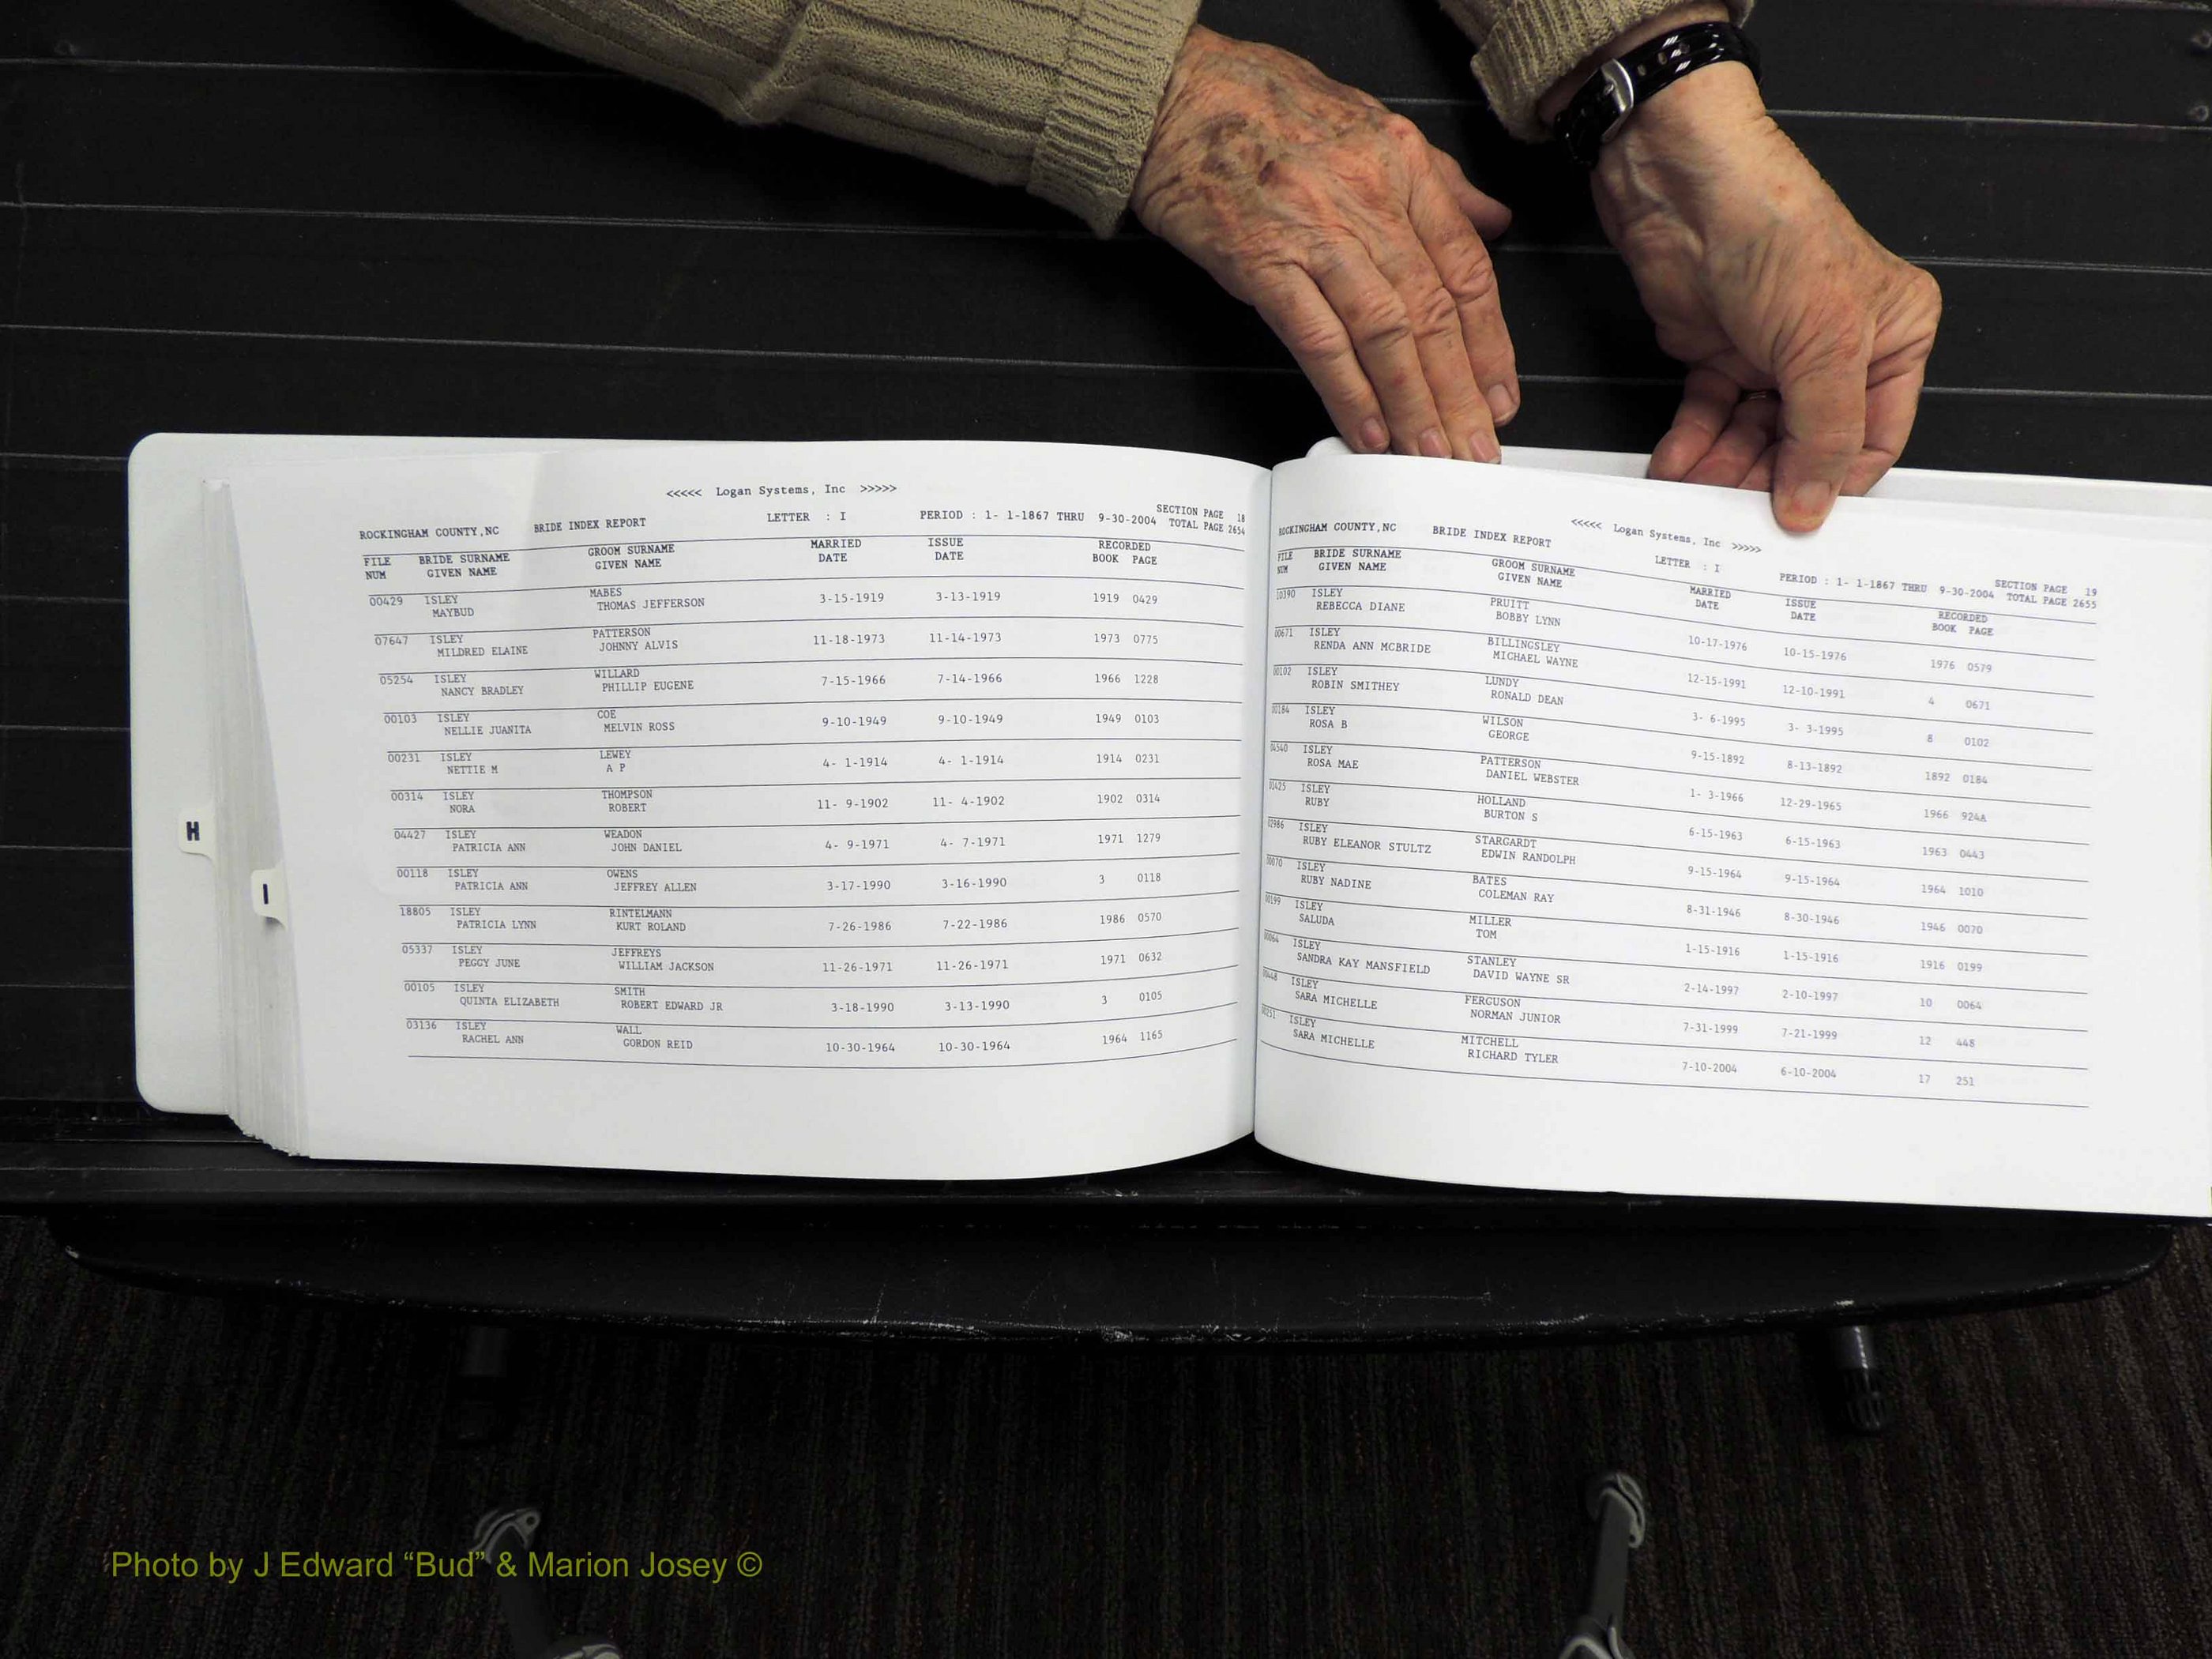 <<<<< Logan Systems, Inc >>>>>
SECTION PAGE 18
ROCKINGHAM COUNTY,NC BRIDE INDEX REPORT LETTER : I PERIOD : 1- 1-1867 THRU 9-30-2004 TOTAL PAGE 2654
FILE BRIDE SURNAME GROOM SURNAME MARRIED ISSUE RECORDED
NUM GIVEN NAME GIVEN NAME DATE DATE BOOK PAGE
00429 ISLEY MABES 3-15-1919 3-13-1919 1919 0429
MAYBUD THOMAS JEFFERSON
07647 ISLEY PATTERSON 11-18-1973 11-14-1973 1973 0775
MILDRED ELAINE JOHNNY ALVIS
05254 ISLEY WILLARD 7-15-1966 7-14-1966 1966 1228
NANCY BRADLEY PHILLIP EUGENE
00103 ISLEY COE 9-10-1949 9-10-1949 1949 0103
NELLIE JUANITA MELVIN ROSS
00231 ISLEY LEWEY 4- 1-1914 4- 1-1914 1914 0231
NETTIE M A P
00314 ISLEY THOMPSON 11- 9-1902 11- 4-1902 1902 0314
NORA ROBERT
04427 ISLEY WEADON 4- 9-1971 4- 7-1971 1971 1279
PATRICIA ANN JOHN DANIEL
00118 ISLEY OWENS 3-17-1990 3-16-1990 3 0118
PATRICIA ANN JEFFREY ALLEN
18805 ISLEY RINTELMANN 7-26-1986 7-22-1986 1986 0570
PATRICIA LYNN KURT ROLAND
05337 ISLEY JEFFREYS 11-26-1971 11-26-1971 1971 0632
PEGGY JUNE WILLIAM JACKSON
00105 ISLEY SMITH 3-18-1990 3-13-1990 3 0105
QUINTA ELIZABETH ROBERT EDWARD JR
03136 ISLEY WALL 10-30-1964 10-30-1964 1964 1165
RACHEL ANN GORDON REID
H
I
<<<<< Logan Systems, Inc >>>>>
SECTION PAGE 19
ROCKINGHAM COUNTY,NC BRIDE INDEX REPORT LETTER : I PERIOD : 1- 1-1867 THRU 9-30-2004 TOTAL PAGE 2655
FILE BRIDE SURNAME GROOM SURNAME MARRIED ISSUE RECORDED
NUM GIVEN NAME GIVEN NAME DATE DATE BOOK PAGE
10390 ISLEY PRUITT 10-17-1976 10-15-1976 1976 0579
REBECCA DIANE BOBBY LYNN
00671 ISLEY BILLINGSLEY 12-15-1991 12-10-1991 4 0671
RENDA ANN MCBRIDE MICHAEL WAYNE
00102 ISLEY LUNDY 3- 6-1995 3- 3-1995 8 0102
ROBIN SMITHEY RONALD DEAN
00184 ISLEY WILSON 9-15-1892 8-13-1892 1892 0184
ROSA B GEORGE
04540 ISLEY PATTERSON 1- 3-1966 12-29-1965 1966 924A
ROSA MAE DANIEL WEBSTER
ISLEY HOLLAND 6-15-1963 6-15-1963 1963 0443
RUBY BURTON S
02986 ISLEY STARGARDT 9-15-1964 9-15-1964 1964 1010
RUBY ELEANOR STULTZ EDWIN RANDOLPH
00070 ISLEY BATES 8-31-1946 8-30-1946 1946 0070
RUBY NADINE COLEMAN RAY
00199 ISLEY MILLER 1-15-1916 1-15-1916 1916 0199
SALUDA TOM
00064 ISLEY STANLEY 2-14-1997 2-10-1997 10 0064
SANDRA KAY MANSFIELD DAVID WAYNE SR
00448 ISLEY FERGUSON 7-31-1999 7-21-1999 12 448
SARA MICHELLE NORMAN JUNIOR
00251 ISLEY MITCHELL 7-10-2004 6-10-2004 17 251
SARA MICHELLE RICHARD TYLER
Photo by J Edward “Bud” & Marion Josey ©